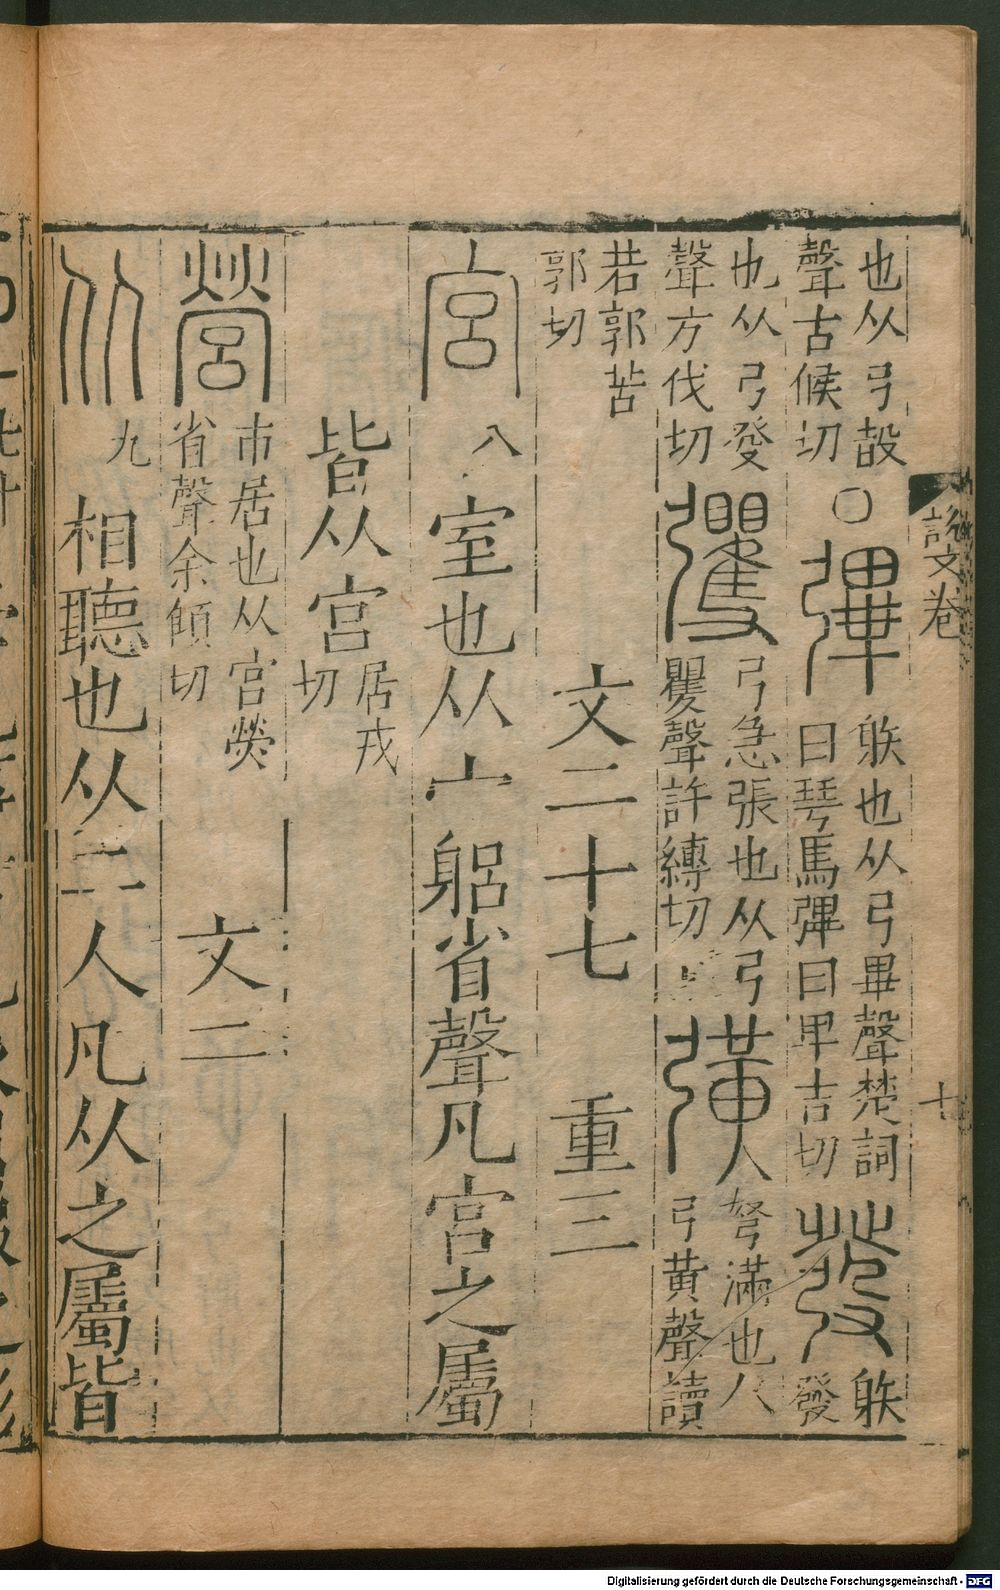 說文卷 十
也从弓㱿
聲古候切
○
彃
䠶也从弓畢聲楚詞
曰琴馬彃曰卑吉切
發
䠶
發
也从弓癹
聲方伐切
彏
弓急張也从弓
矍聲許縛切
彉
弩滿也从
弓黃聲讀
若郭苦
郭切
文二十七 重三
宮 八 室也从宀躳省聲凡宮之屬
皆从宮
居戎
切
營
市居也从宮熒
省聲余傾切
文二
从 九 相聽也从二人凡从之屬皆
Digitalisierung gefördert durch die Deutsche Forschungsgemeinschaft - DFG